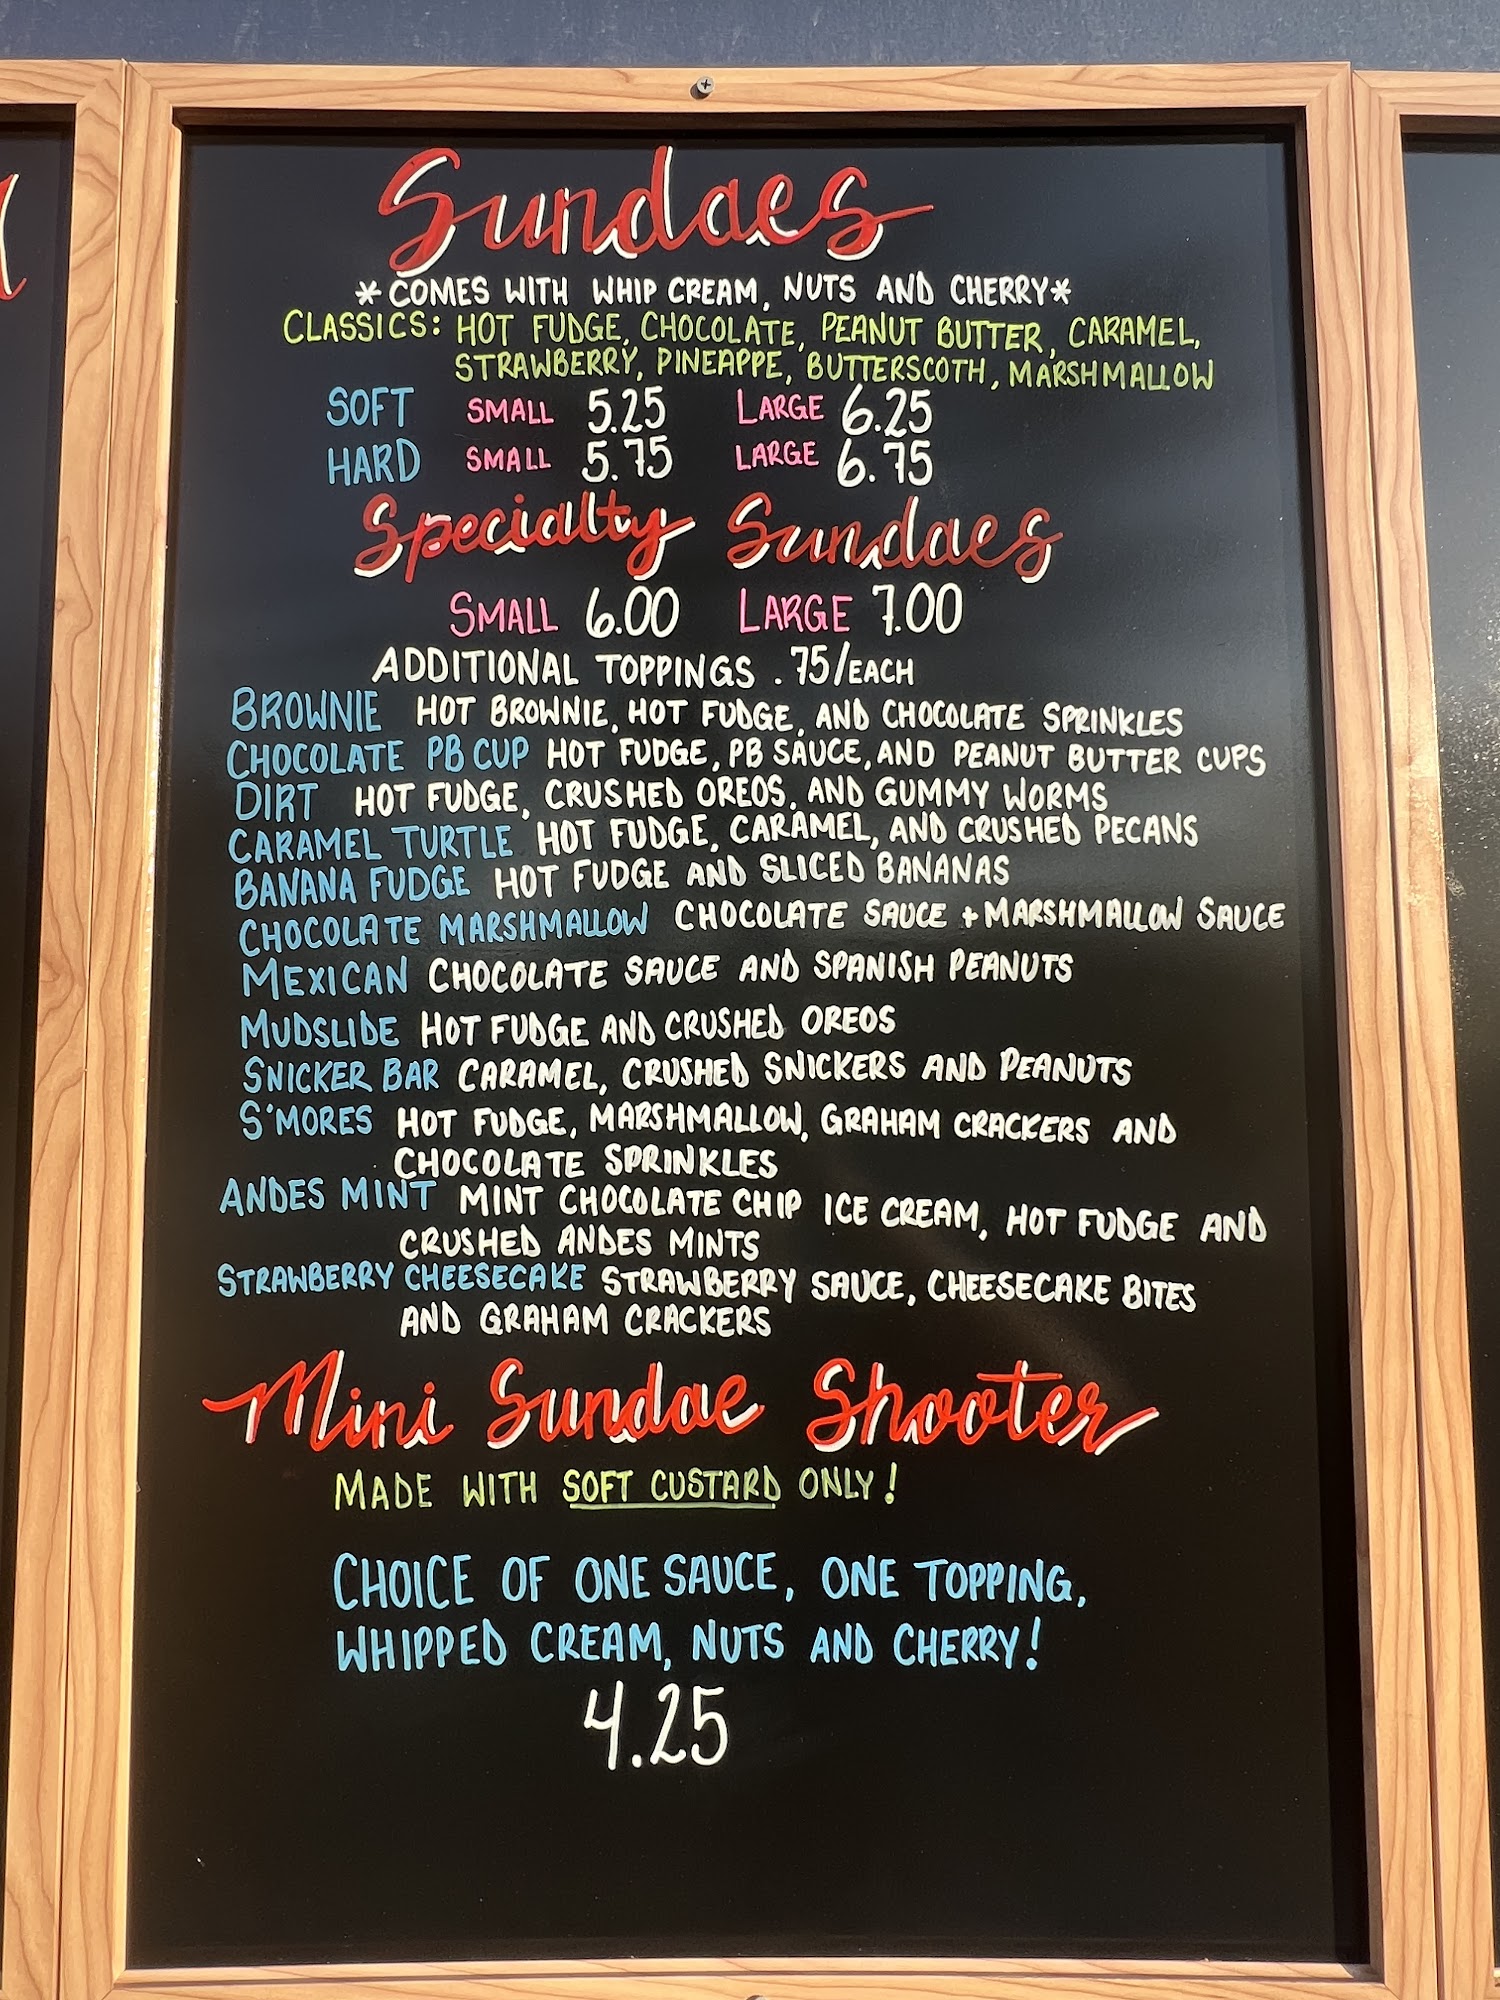 Sundaes
*COMES WITH WHIP CREAM, NUTS AND CHERRY*
CLASSICS: HOT FUDGE, CHOCOLATE, PEANUT BUTTER, CARAMEL,
STRAWBERRY, PINEAPPE, BUTTERSCOTH, MARSHMALLOW
SOFT SMALL 5.25 LARGE 6.25
HARD SMALL 5.75 LARGE 6.75
Specialty Sundaes
SMALL 6.00 LARGE 7.00
ADDITIONAL TOPPINGS .75/EACH
BROWNIE HOT BROWNIE, HOT FUDGE, AND CHOCOLATE SPRINKLES
CHOCOLATE PB CUP HOT FUDGE, PB SAUCE, AND PEANUT BUTTER CUPS
DIRT HOT FUDGE, CRUSHED OREOS, AND GUMMY WORMS
CARAMEL TURTLE HOT FUDGE, CARAMEL, AND CRUSHED PECANS
BANANA FUDGE HOT FUDGE AND SLICED BANANAS
CHOCOLATE MARSHMALLOW CHOCOLATE SAUCE + MARSHMALLOW SAUCE
MEXICAN CHOCOLATE SAUCE AND SPANISH PEANUTS
MUDSLIDE HOT FUDGE AND CRUSHED OREOS
SNICKER BAR CARAMEL, CRUSHED SNICKERS AND PEANUTS
S'MORES HOT FUDGE, MARSHMALLOW, GRAHAM CRACKERS AND
CHOCOLATE SPRINKLES
ANDES MINT MINT CHOCOLATE CHIP ICE CREAM, HOT FUDGE AND
CRUSHED ANDES MINTS
STRAWBERRY CHEESECAKE STRAWBERRY SAUCE, CHEESECAKE BITES
AND GRAHAM CRACKERS
Mini Sundae Shooter
MADE WITH SOFT CUSTARD ONLY!
CHOICE OF ONE SAUCE, ONE TOPPING,
WHIPPED CREAM, NUTS AND CHERRY!
4.25